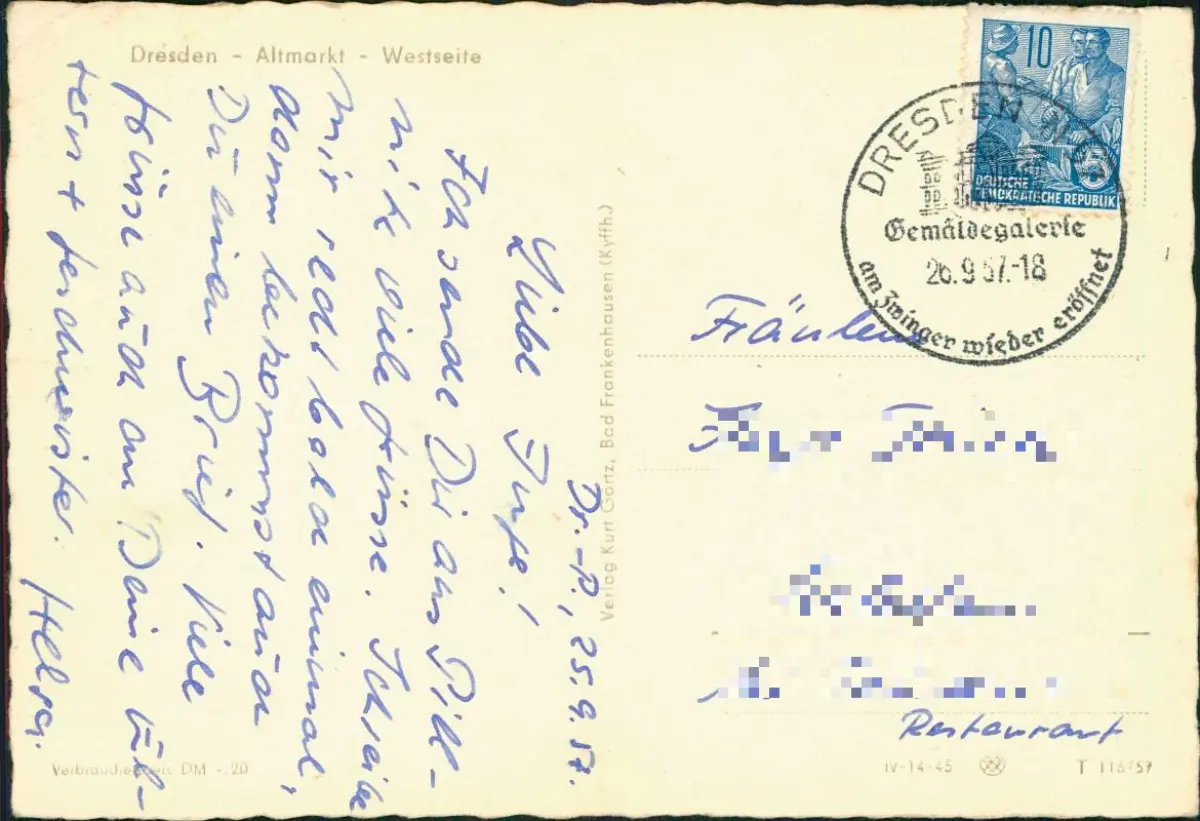 Dresden - Altmarkt - Westseite
Dr.-P., 25.9.57.
Liebe Inge!
Ich sende Dir aus Pill-
nitz viele Grüsse. Schreibe
mir recht bald einmal,
dann bekommst auch
Du einen Brief. Viele
Grüsse auch an Deine El-
tern + Geschwister.
Helga.
Verbraucherpreis DM -.20
Verlag Kurt Görtz, Bad Frankenhausen (Kyffh.)
10
DEUTSCHE
DEMOKRATISCHE REPUBLIK
5
DRESDEN
Gemäldegalerie
26.9.57.-18
am Zwinger wieder eröffnet
Fräulein
Restaurant
IV-14-45
T 116/57